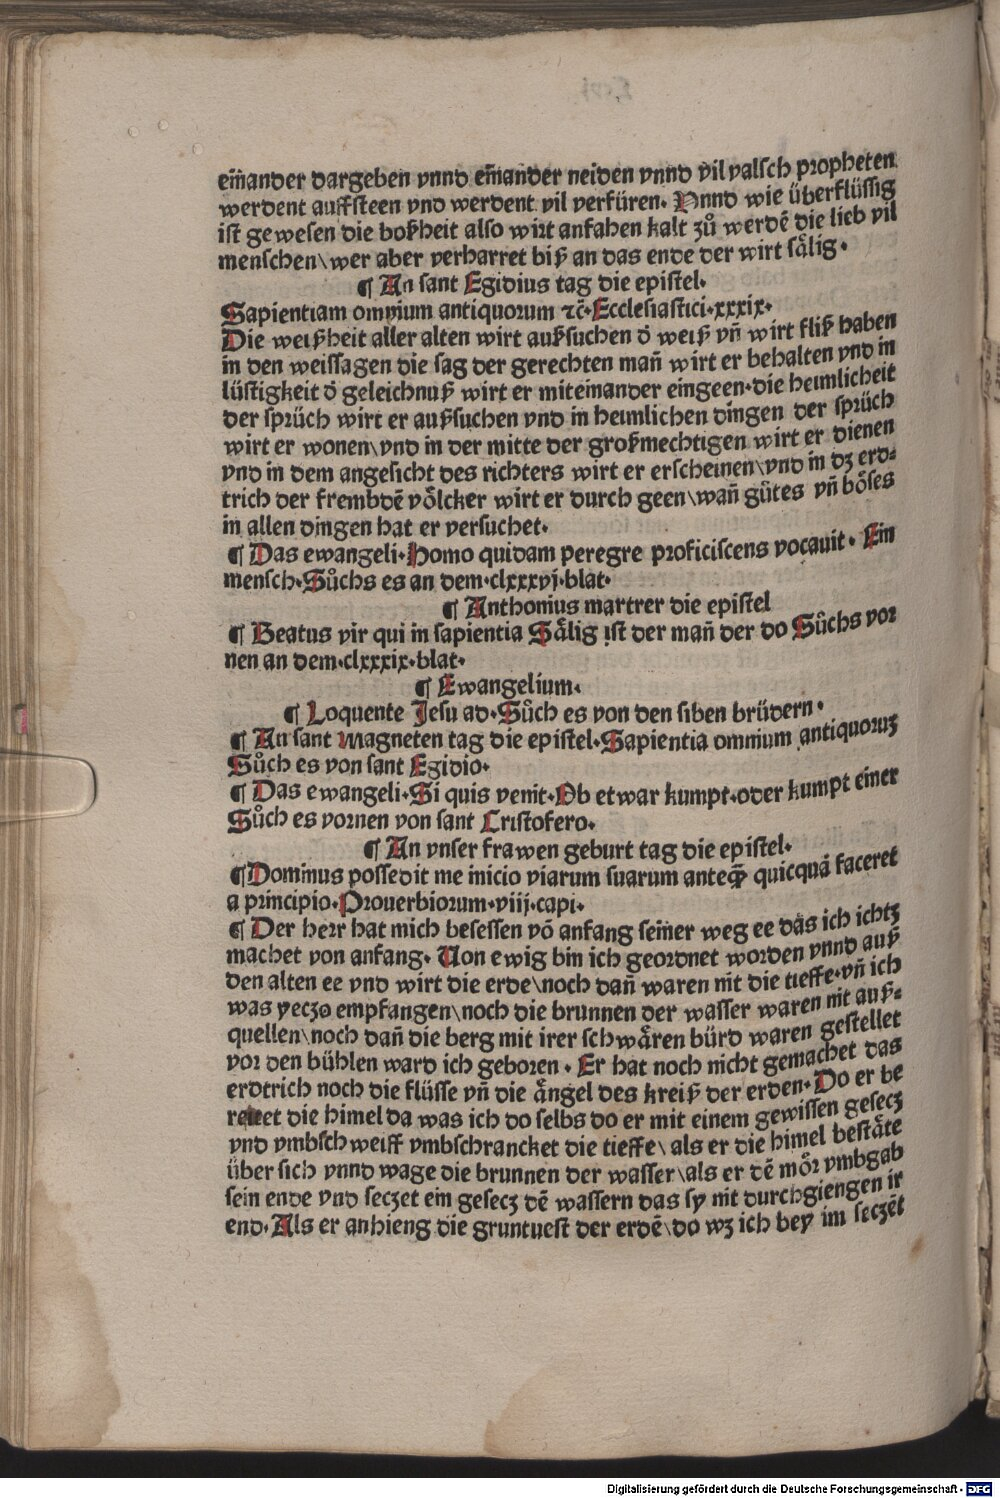 em̄ander dargeben vnnd em̄ander neiden vnnd vil valsch propheten
werdent auffsteen vnd werdent vil verfüren. Vnnd wie überflüssig
ist gewesen die boßheit also wirt anfahen kalt zů werdē die lieb vil
menschen\wer aber verharret biß an das ende der wirt sälig.
¶ An sant Egidius tag die epistel.
Sapientiam omnium antiquorum ⁊c̄.Ecclesiastici.xxxix.
Die weißheit aller alten wirt außsuchen d̄ weiß vn̄ wirt fliß haben
in den weissagen die sag der gerechten man̄ wirt er behalten vnd in
lüstigkeit d̄ geleichnuß wirt er miteinander eingeen.die heimlicheit
der sprüch wirt er außsuchen vnd in heimlichen dingen der sprüch
wirt er wonen\vnd in der mitte der großmechtigen wirt er dienen
vnd in dem angesicht des richters wirt er erscheinen\vnd in dz erd-
trich der frembdē völcker wirt er durch geen\wan̄ gůtes vn̄ böses
in allen dingen hat er versuchet.
¶ Das ewangeli.Homo quidam peregre proficiscens vocauit. Ein
mensch.Sůchs es an dem.clxxxvj.blat.
¶ Anthonius martrer die epistel
¶ Beatus vir qui in sapientia Sälig ist der man̄ der do Sůchs vor
nen an dem.clxxxix.blat.
¶ Ewangelium.
¶ Loquente Jesu ad.Sůch es von den siben brüdern.
¶ An sant Magneten tag die epistel.Sapientia omnium antiquoruz
Sůch es von sant Egidio.
¶ Das ewangeli.Si quis venit.Ob etwar kumpt.oder kumpt einer
Sůch es vornen von sant Cristofero.
¶ An vnser frawen geburt tag die epistel.
¶ Dominus possedit me inicio viarum suarum anteqꝫ quicquā faceret
a principio.Prouerbiorum.viij.capi.
¶ Der herr hat mich besessen vō anfang seiner weg ee das ich ichtz
machet von anfang. Uon ewig bin ich geordnet worden vnnd auß
den alten ee vnd wirt die erde\noch dan̄ waren nit die tieffe.vn̄ ich
was yeczo empfangen\noch die brunnen der wasser waren nit auß-
quellen\noch dan̄ die berg mit irer schwären bürd waren gestellet
vor den bühlen ward ich geboren. Er hat noch nicht gemachet das
erdtrich noch die flüsse vn̄ die ängel des kreiß der erden.Do er be
reitet die himel da was ich do selbs do er mit einem gewissen gesecz
vnd vmbschweiff vmbschrancket die tieffe\ als er die himel bestäte
über sich vnnd wage die brunnen der wasser\als er dē mör vmbgab
sein ende vnd seczet ein gesecz dē wassern das sy nit durchgiengen ir
end.Als er anhieng die gruntuest der erdē\do wz ich bey im seczēt
Digitalisierung gefördert durch die Deutsche Forschungsgemeinschaft - DFG